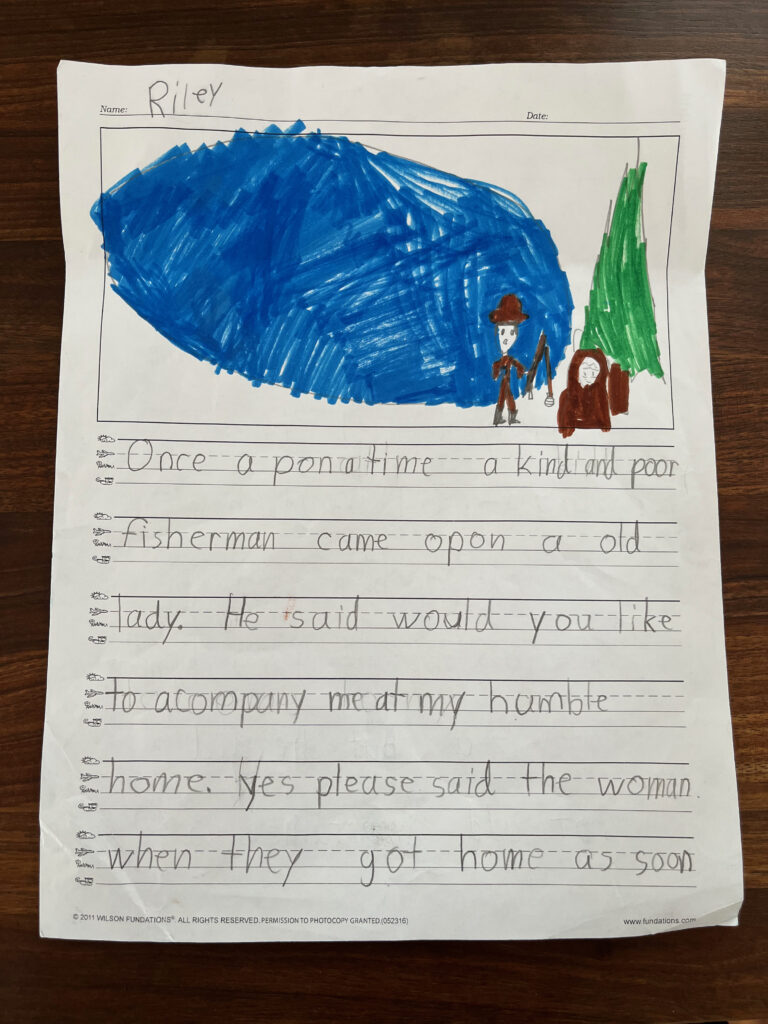 Name: Riley
Date:
Once a pon a time a kind and poor
fisherman came opon a old
lady. He said would you like
to acompany me at my humble
home. Yes please said the woman.
when they got home as soon
© 2011 WILSON FUNDATIONS®. ALL RIGHTS RESERVED. PERMISSION TO PHOTOCOPY GRANTED.(052316)
www.fundations.com